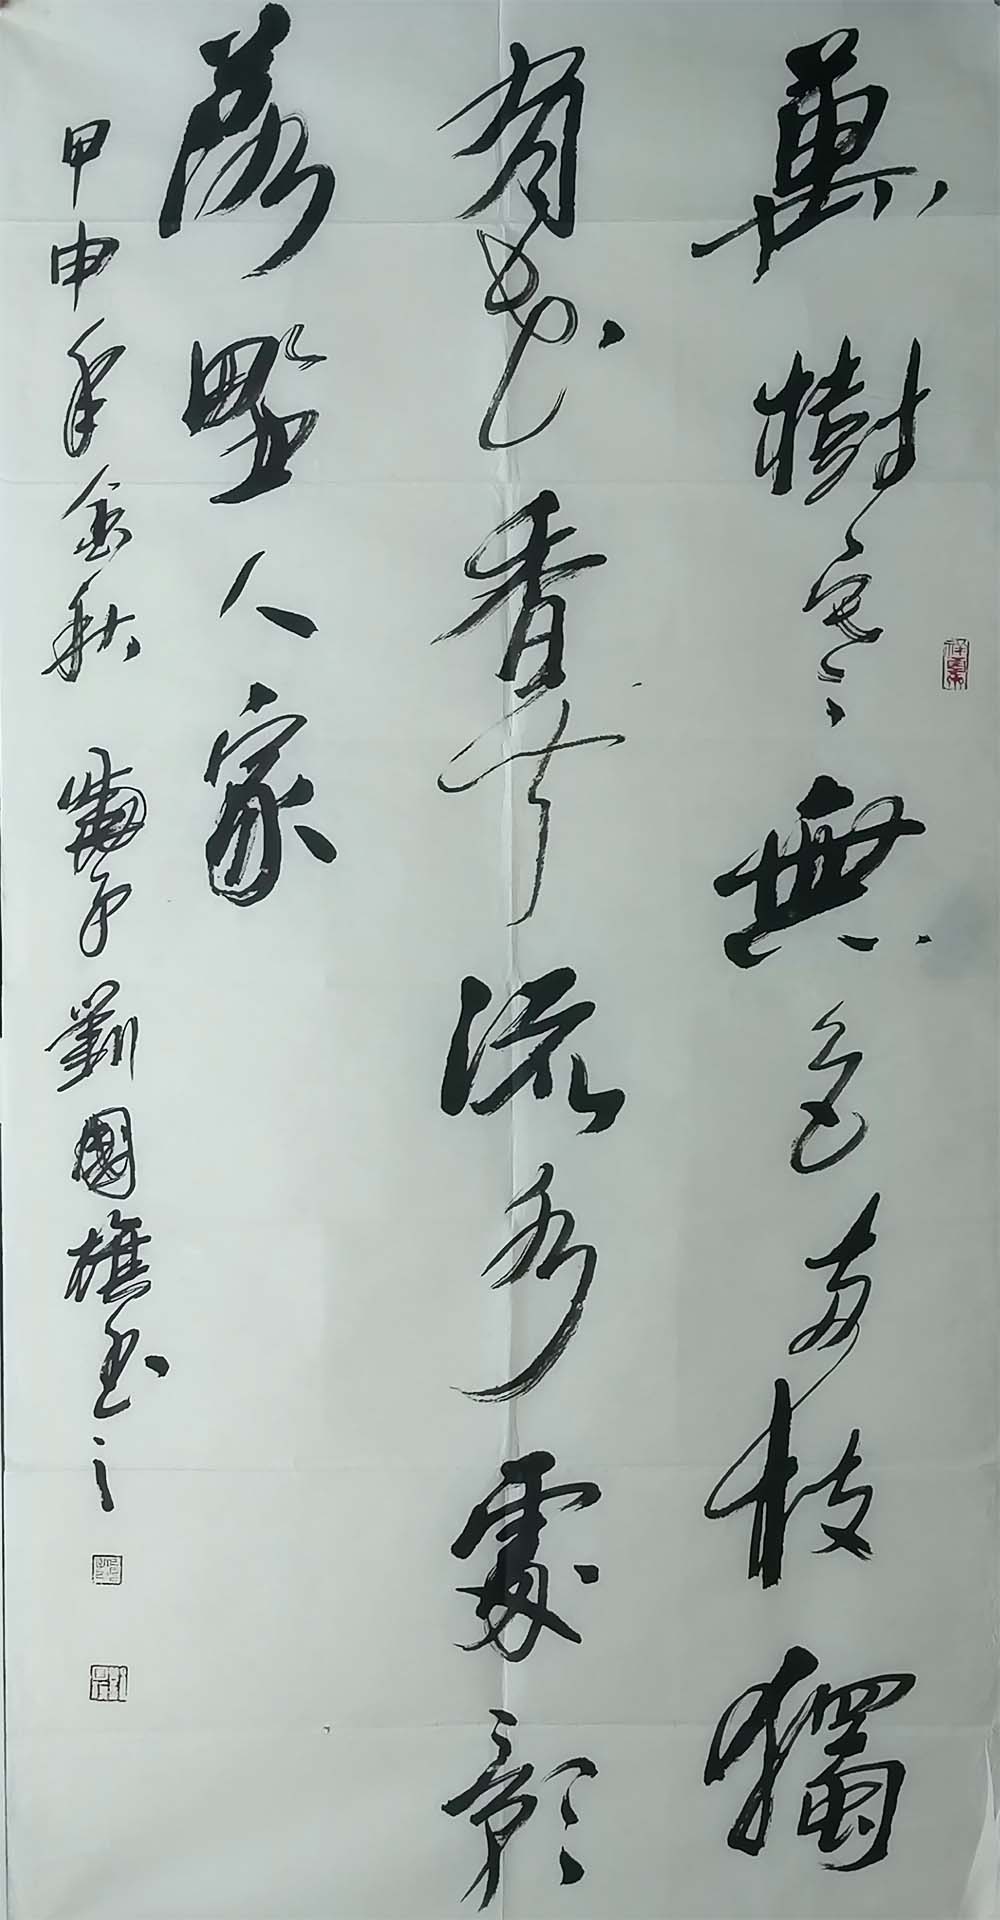 萬樹寒無色南枝獨
有花香于流水處影
落野人家
甲申年金秋 劉國樵書之